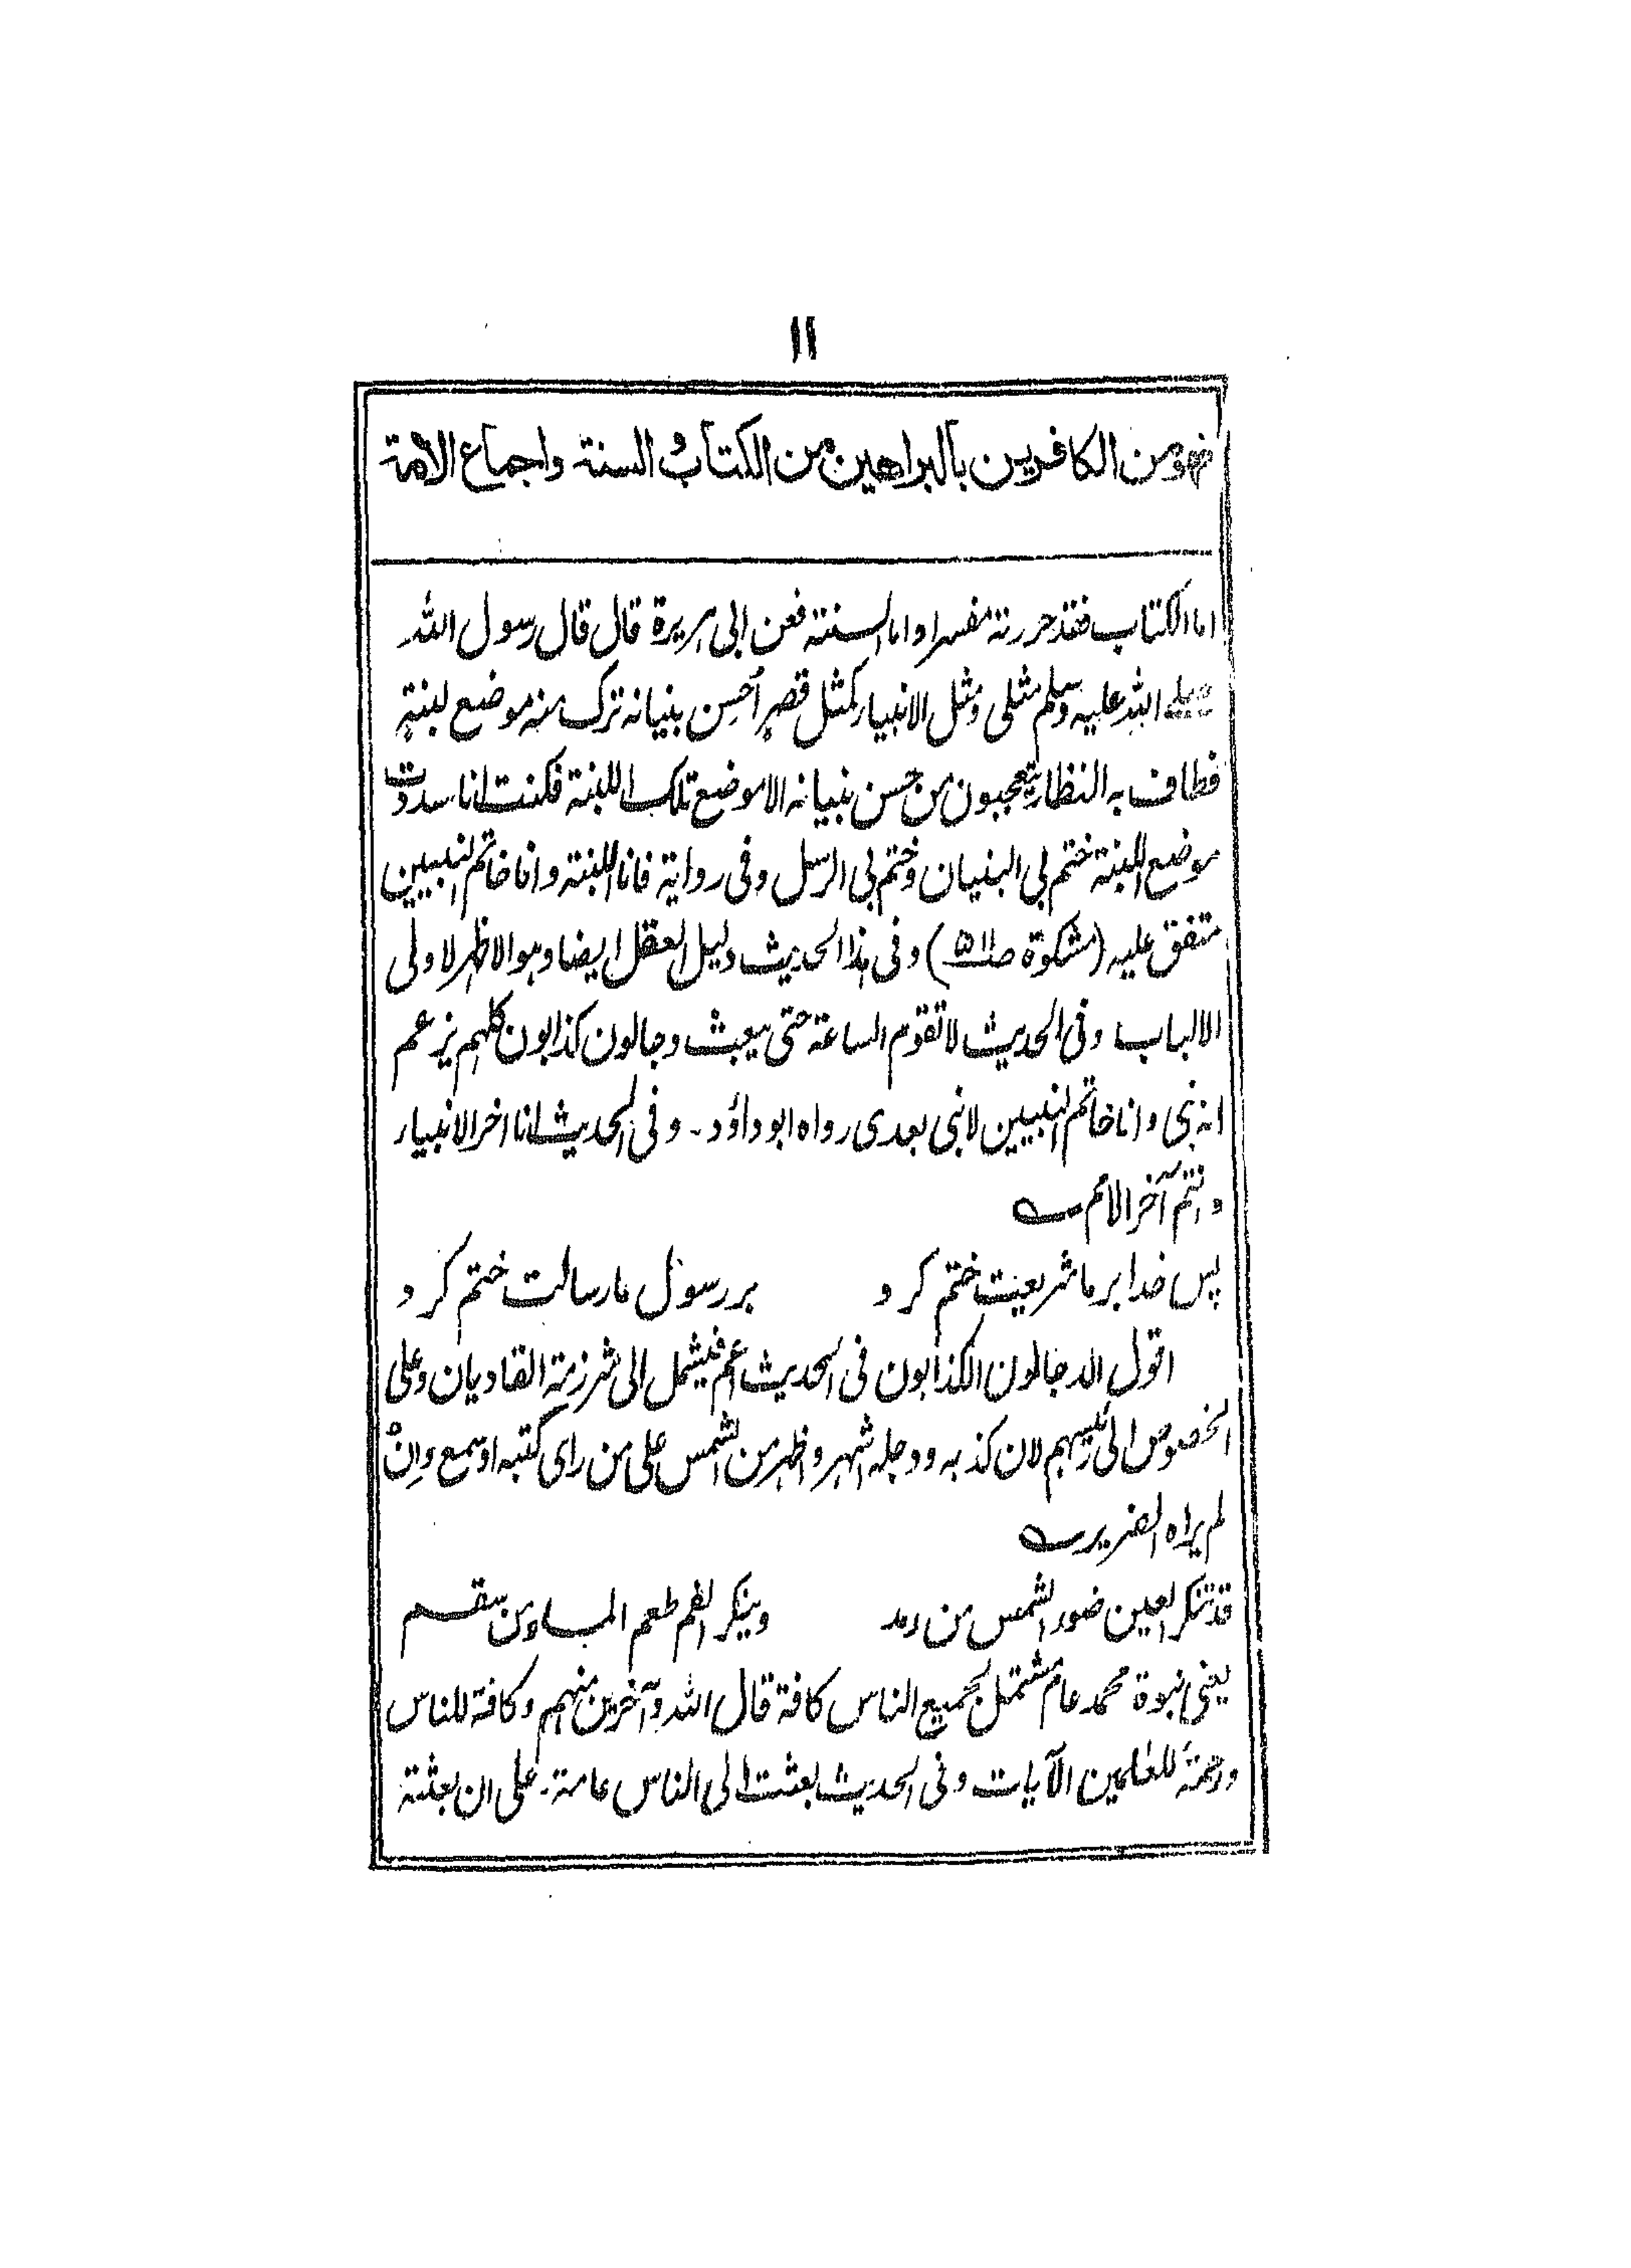 ۱۱
فهو من الكافرين بالبراهين من الكتاب و السنة واجماع الامة
اما الكتاب فقد حررته مفسرا واما السنته فعن ابی هريرة قال قال رسول الله
صلے الله عليه وسلم مثلی ومثل الانبياء كمثل قصر اُحسِن بنيانه ترك منه موضع لبنةٍ
فطاف به النظار يتعجبون من حسن بنيانه الا موضع تلك اللبنة فكنت انا سددت
موضع اللبنة ختم بی البنيان وختم بی الرسل وفی رواية فانا اللبنة وانا خاتم النبيين
متفق عليه (مشكوة ص۵۱۱) وفی هذا الحديث دليل العقل ايضا وهو الاظهر لاولی
الالباب وفی الحديث لا تقوم الساعة حتی يبعث دجالون كذابون كلهم يزعم
انه نبی وانا خاتم النبيين لا نبی بعدی رواه ابو داؤد۔ وفی الحديث انا اخر الانبياء
وانتم آخر الامم ؎
پس خدا بر ما شریعت ختم کرد بر رسول ما رسالت ختم کرد
اقول الدجالون الكذابون فی الحديث اعم فيشمل الی شرزمة القاديان وعلی
الخصوص الی رئيسهم لان كذبه ودجله اشهر واظهر من الشمس علی من رای كتبه او سمع وان
لم يراه الضرير ؎
قد تنكر العين ضوء الشمس من رمد وينكر الفم طعم الماء من سقم
يعنی نبوة محمد عام مشتمل لجميع الناس كافة قال الله وآخرين منهم وكافة للناس
ورحمة للعٰلمين الآيات وفی الحديث بعثت الی الناس عامة۔ علی ان بعثته